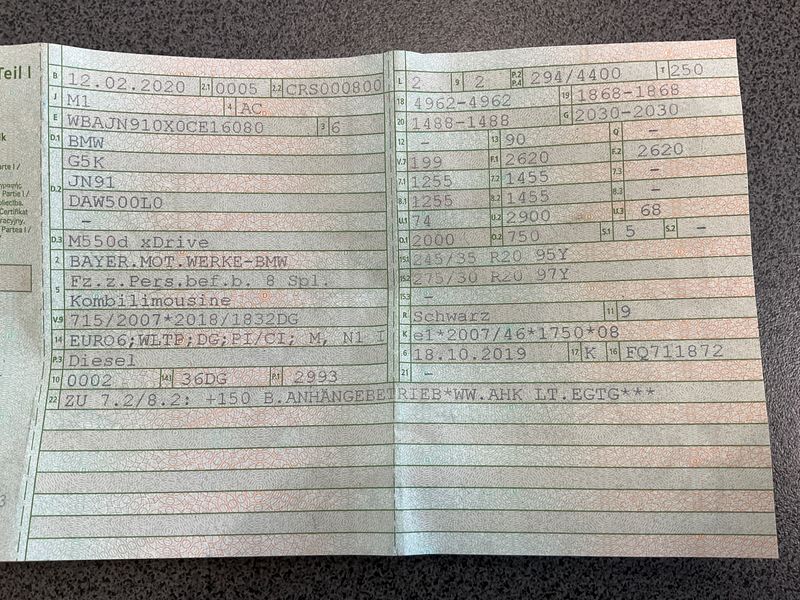 Teil I
B 12.02.2020 2.1 0005 2.2 CRS000800
J M1 4 AC
E WBAJN910X0CE16080 3 6
D.1 BMW
G5K
JN91
D.2 DAW500L0
–
D.3 M550d xDrive
2 BAYER.MOT.WERKE-BMW
5 Fz.z.Pers.bef.b. 8 Spl.
Kombilimousine
V.9 715/2007*2018/1832DG
14 EURO6;WLTP;DG;PI/CI; M, N1 I
P.3 Diesel
10 0002 14.1 36DG P.1 2993
22 ZU 7.2/8.2: +150 B.ANHÄNGEBETRIEB*WW.AHK LT.EGTG***
L 2 9 2 P.2 P.4 294/4400 T 250
18 4962-4962 19 1868-1868
20 1488-1488 G 2030-2030
12 – 13 90 Q –
V.7 199 F.1 2620 F.2 2620
7.1 1255 7.2 1455 7.3 –
8.1 1255 8.2 1455 8.3 –
U.1 74 U.2 2900 U.3 68
O.1 2000 O.2 750 S.1 5 S.2 –
15.1 245/35 R20 95Y
15.2 275/30 R20 97Y
15.3 –
R Schwarz 11 9
K e1*2007/46*1750*08
6 18.10.2019 17 K 16 FQ711872
21 –
Partie I /
Certifikat
Partea I /
3